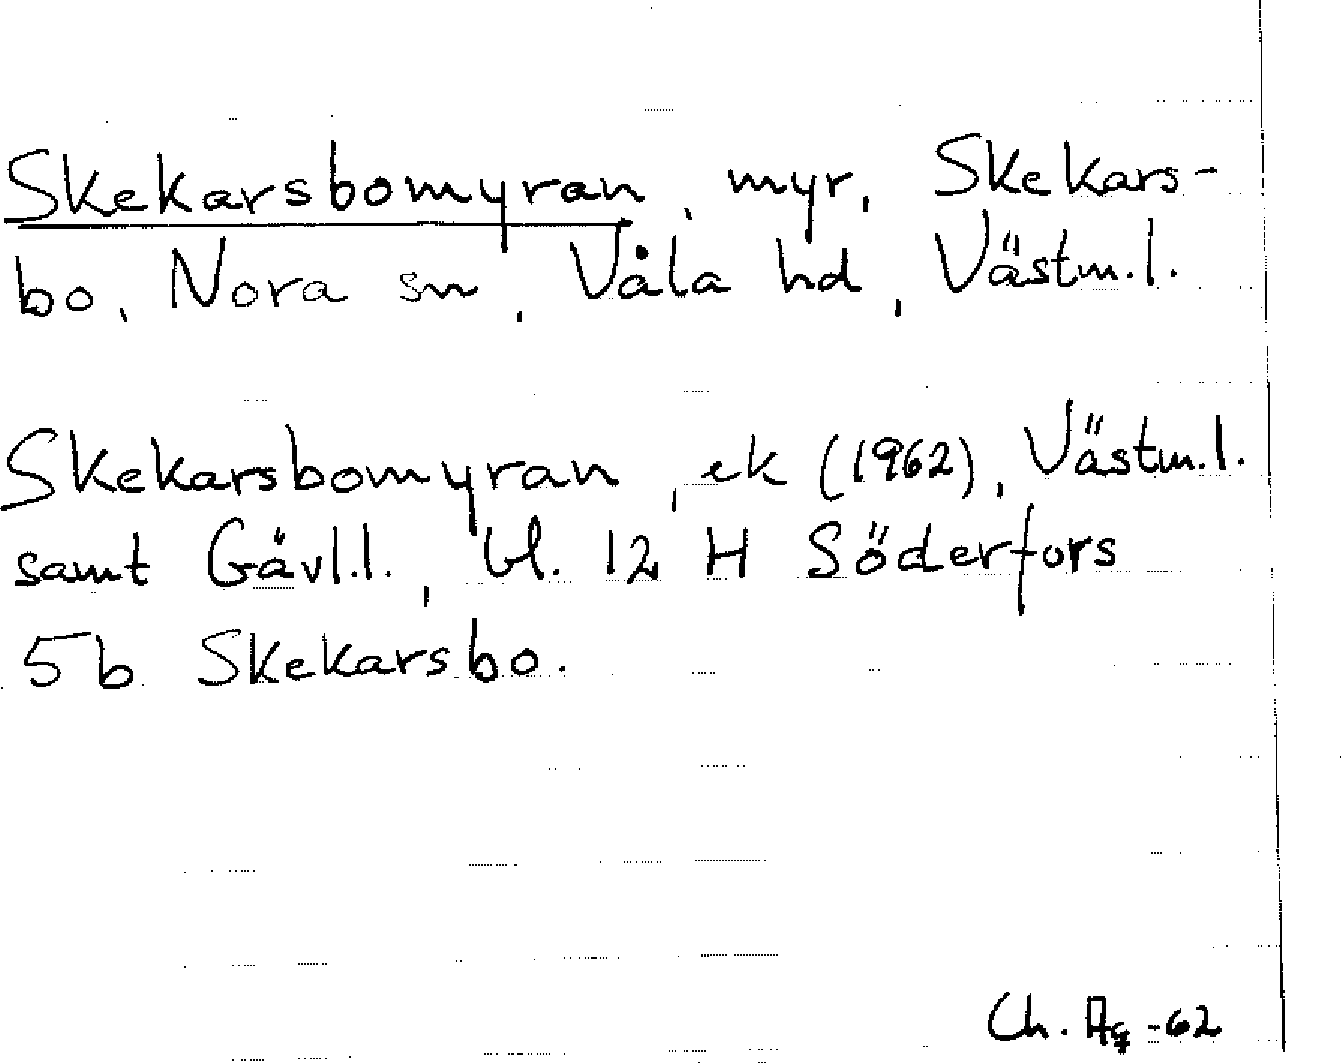 Skekarsbomyran, myr, Skekars-
bo, Nora sn, Våla hd, Västm.l.
Skekarsbomyran, ek (1962), Västm.l.
samt Gävl.l., bl. 12 H Söderfors
5b Skekarsbo.
Ch. Ag -62